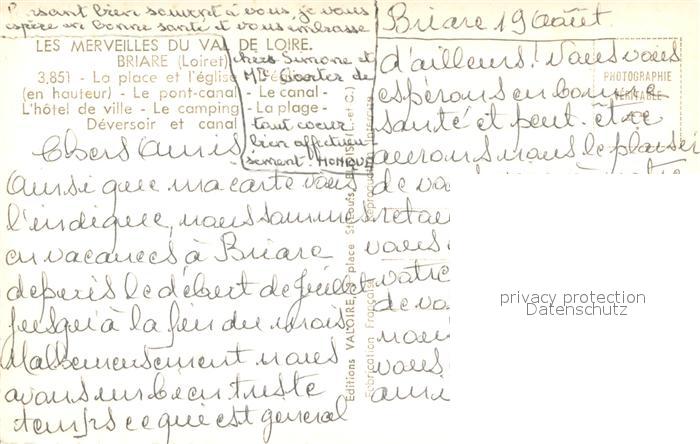 Pensant bien souvent à vous, je vous
espère en bonne santé et vous embrasse
LES MERVEILLES DU VAL DE LOIRE.
BRIARE (Loiret)
3,851 - La place et l'église
(en hauteur) - Le pont-canal - Le canal -
L'hôtel de ville - Le camping - La plage -
Déversoir et canal
chers Simone et
de
tout coeur
bien affectueu
sement. MONIQUE
Chers Amis
Ainsi que ma carte vous
l'indique, nous sommes
en vacances à Briare
depuis le début de juillet
jusqu'à la fin du mois
Malheureusement nous
avons un bien triste
temps ce qui est général
Briare 19 août
d'ailleurs! Nous vous
espérons en bonne
santé et peut être
aurons nous le plaisir
de
vous
votre
de
nous
vous
PHOTOGRAPHIE
VÉRITABLE
Editions VALOIRE, place St-Louis, BLOIS (L.-et-C.)
Fabrication Française - Reproduction Interdite
privacy protection
Datenschutz